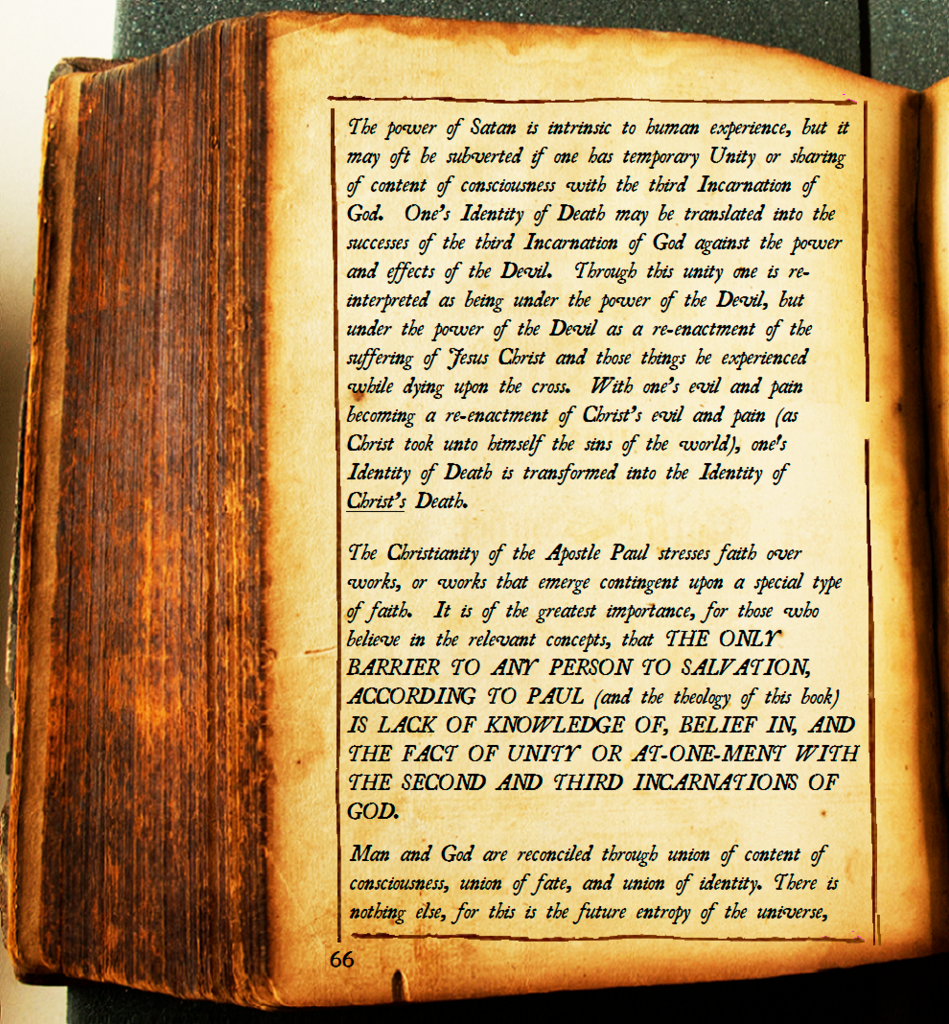 The power of Satan is intrinsic to human experience, but it
may oft be subverted if one has temporary Unity or sharing
of content of consciousness with the third Incarnation of
God. One's Identity of Death may be translated into the
successes of the third Incarnation of God against the power
and effects of the Devil. Through this unity one is re-
interpreted as being under the power of the Devil, but
under the power of the Devil as a re-enactment of the
suffering of Jesus Christ and those things he experienced
while dying upon the cross. With one's evil and pain
becoming a re-enactment of Christ's evil and pain (as
Christ took unto himself the sins of the world), one's
Identity of Death is transformed into the Identity of
Christ's Death.
The Christianity of the Apostle Paul stresses faith over
works, or works that emerge contingent upon a special type
of faith. It is of the greatest importance, for those who
believe in the relevant concepts, that THE ONLY
BARRIER TO ANY PERSON TO SALVATION,
ACCORDING TO PAUL (and the theology of this book)
IS LACK OF KNOWLEDGE OF, BELIEF IN, AND
THE FACT OF UNITY OR AT-ONE-MENT WITH
THE SECOND AND THIRD INCARNATIONS OF
GOD.
Man and God are reconciled through union of content of
consciousness, union of fate, and union of identity. There is
nothing else, for this is the future entropy of the universe,
66